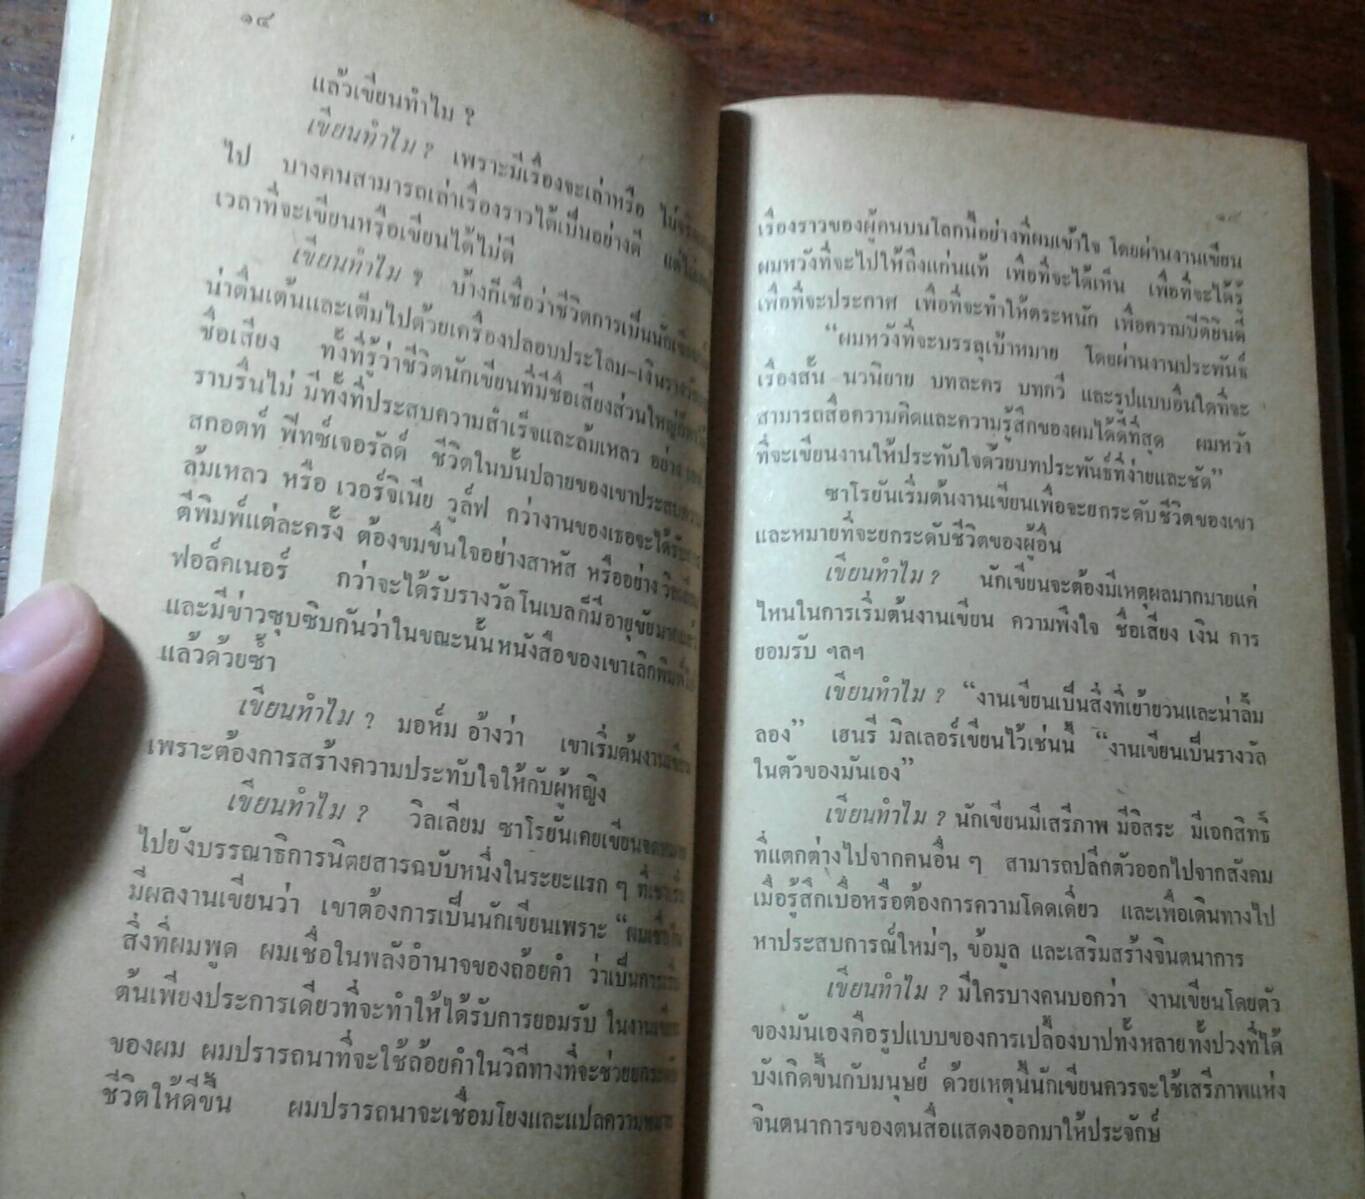 ๑๔
แล้วเขียนทำไม ?
เขียนทำไม ? เพราะมีเรื่องจะเล่าหรือ
ไป บางคนสามารถเล่าเรื่องราวได้เป็นอย่างดี
เวลาที่จะเขียนหรือเขียนได้ไม่ดี
เขียนทำไม ? บ้างก็เชื่อว่าชีวิตการเป็นนักเขียน
น่าตื่นเต้นและเต็มไปด้วยเครื่องปลอบประโลม-เงินรางวัล
ชื่อเสียง ทั้งที่รู้ว่าชีวิตนักเขียนที่มีชื่อเสียงส่วนใหญ่
ราบรื่นไม่ มีทั้งที่ประสบความสำเร็จและล้มเหลว อย่าง
สกอตท์ ฟิทซ์เจอรัลด์ ชีวิตในบั้นปลายของเขาประสบความ
ล้มเหลว หรือ เวอร์จิเนีย วูล์ฟ กว่างานของเธอจะได้รับการ
ตีพิมพ์แต่ละครั้ง ต้องขมขื่นใจอย่างสาหัส หรืออย่าง วิลเลียม
ฟอล์คเนอร์ กว่าจะได้รับรางวัลโนเบลก็มีอายุขัยมาก
และมีข่าวซุบซิบกันว่าในขณะนั้นหนังสือของเขาเลิกพิมพ์
แล้วด้วยซ้ำ
เขียนทำไม ? มอห์ม อ้างว่า เขาเริ่มต้นงานเขียน
เพราะต้องการสร้างความประทับใจให้กับผู้หญิง
เขียนทำไม ? วิลเลียม ซาโรยันเคยเขียนจดหมาย
ไปยังบรรณาธิการนิตยสารฉบับหนึ่งในระยะแรก ๆ ที่เขาเริ่ม
มีผลงานเขียนว่า เขาต้องการเป็นนักเขียนเพราะ “ผมเชื่อใน
สิ่งที่ผมพูด ผมเชื่อในพลังอำนาจของถ้อยคำ ว่าเป็นการเริ่ม
ต้นเพียงประการเดียวที่จะทำให้ได้รับการยอมรับ ในงานเขียน
ของผม ผมปรารถนาที่จะใช้ถ้อยคำในวิถีทางที่จะช่วยยกระดับ
ชีวิตให้ดีขึ้น ผมปรารถนาจะเชื่อมโยงและแปลความหมาย
๑๕
เรื่องราวของผู้คนบนโลกนี้อย่างที่ผมเข้าใจ โดยผ่านงานเขียน
ผมหวังที่จะไปให้ถึงแก่นแท้ เพื่อที่จะได้เห็น เพื่อที่จะได้รู้
เพื่อที่จะประกาศ เพื่อที่จะทำให้ตระหนัก เพื่อความปีติยินดี
“ผมหวังที่จะบรรลุเป้าหมาย โดยผ่านงานประพันธ์
เรื่องสั้น นวนิยาย บทละคร บทกวี และรูปแบบอื่นใดที่จะ
สามารถสื่อความคิดและความรู้สึกของผมได้ดีที่สุด ผมหวัง
ที่จะเขียนงานให้ประทับใจด้วยบทประพันธ์ที่ง่ายและชัด”
ซาโรยันเริ่มต้นงานเขียนเพื่อจะยกระดับชีวิตของเขา
และหมายที่จะยกระดับชีวิตของผู้อื่น
เขียนทำไม ? นักเขียนจะต้องมีเหตุผลมากมายแค่
ไหนในการเริ่มต้นงานเขียน ความพึงใจ ชื่อเสียง เงิน การ
ยอมรับ ฯลฯ
เขียนทำไม ? “งานเขียนเป็นสิ่งที่เย้ายวนและน่าลิ้ม
ลอง” เฮนรี มิลเลอร์เขียนไว้เช่นนี้ “งานเขียนเป็นรางวัล
ในตัวของมันเอง”
เขียนทำไม ? นักเขียนมีเสรีภาพ มีอิสระ มีเอกสิทธิ์
ที่แตกต่างไปจากคนอื่น ๆ สามารถปลีกตัวออกไปจากสังคม
เมื่อรู้สึกเบื่อหรือต้องการความโดดเดี่ยว และเพื่อเดินทางไป
หาประสบการณ์ใหม่ๆ, ข้อมูล และเสริมสร้างจินตนาการ
เขียนทำไม ? มีใครบางคนบอกว่า งานเขียนโดยตัว
ของมันเองคือรูปแบบของการเปลื้องบาปทั้งหลายทั้งปวงที่ได้
บังเกิดขึ้นกับมนุษย์ ด้วยเหตุนี้นักเขียนควรจะใช้เสรีภาพแห่ง
จินตนาการของตนสื่อแสดงออกมาให้ประจักษ์